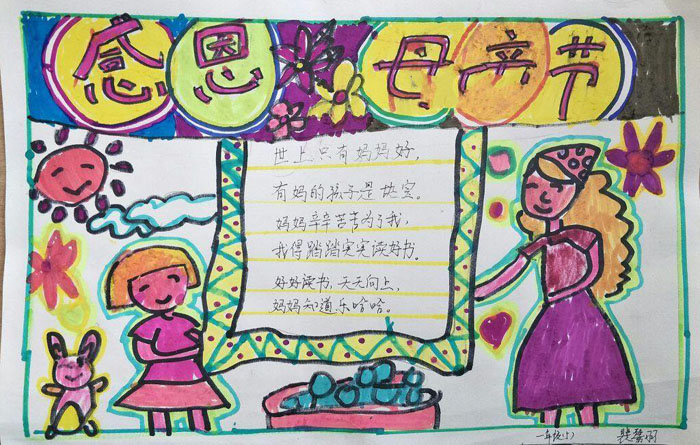 感恩母产节
世上只有妈妈好，
有妈的孩子是块宝。
妈妈辛辛苦苦为了我，
我得踏踏实实读好书。
好好读书，天天向上，
妈妈知道乐哈哈。